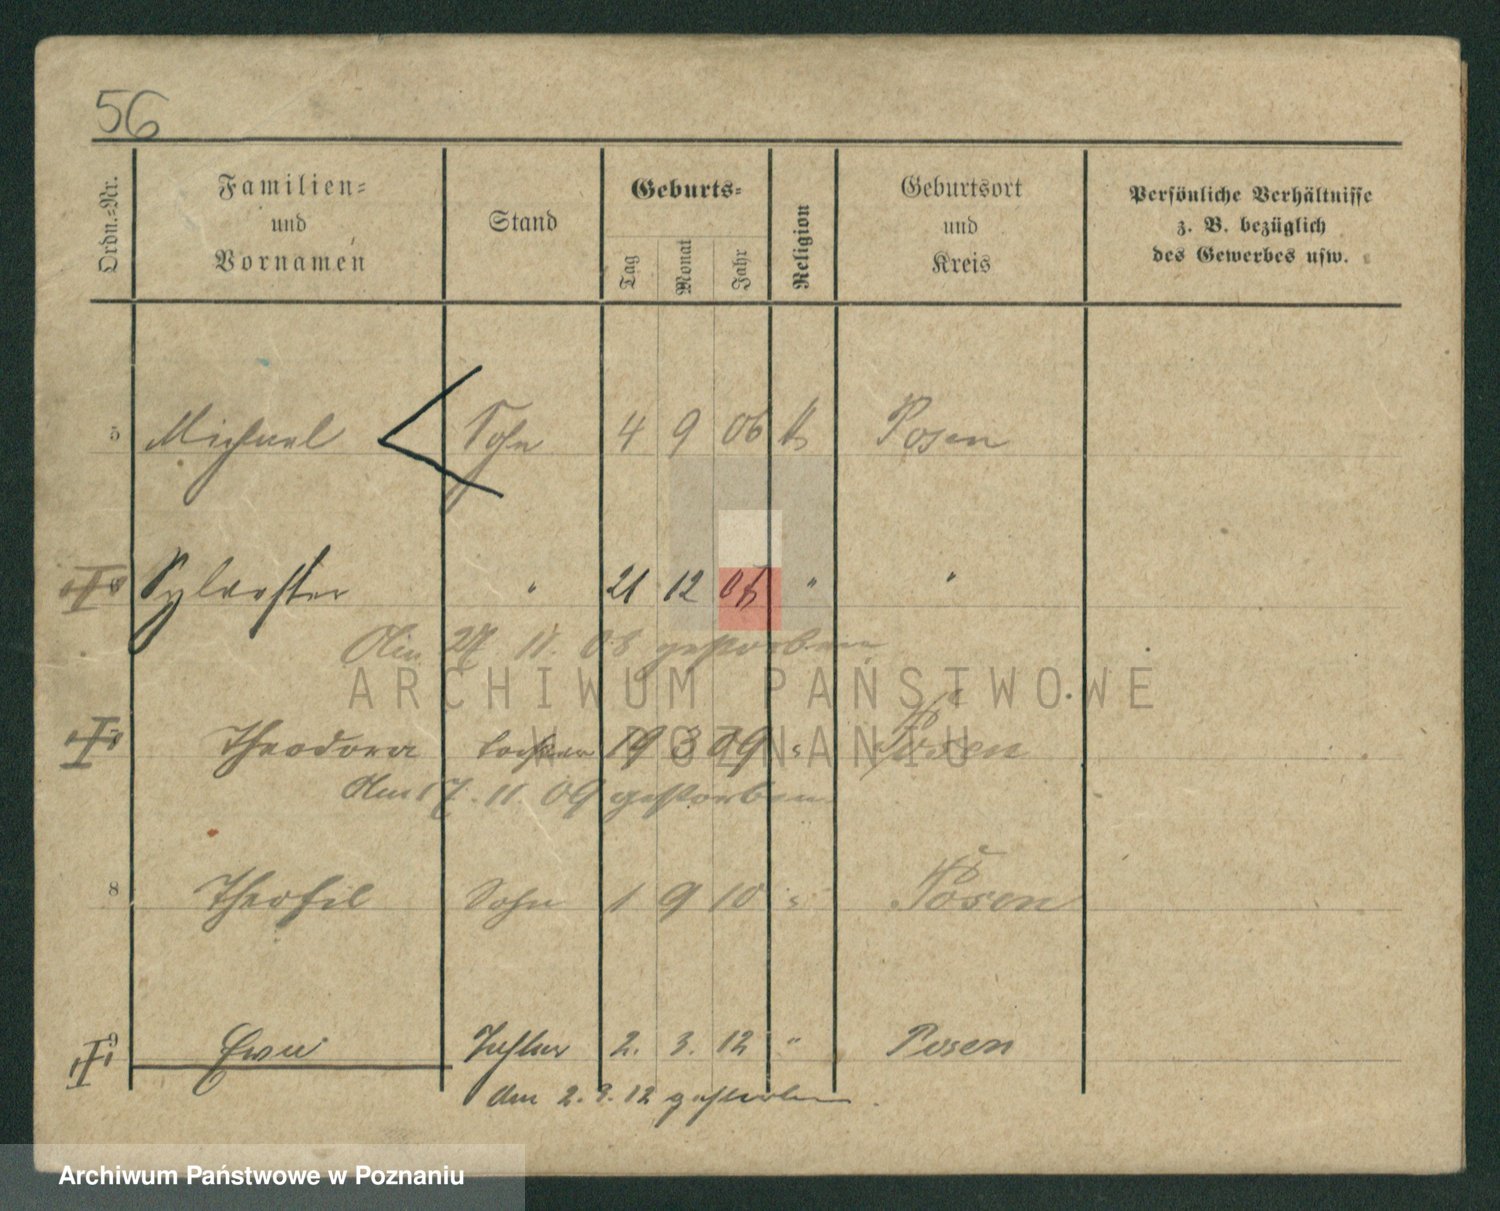 56
Ordn.-Nr. Familien- und Vornamen Stand Geburts- Tag Monat Jahr Religion Geburtsort und Kreis Persönliche Verhältnisse z. B. bezüglich des Gewerbes usw.
5 Michael Sohn 4 9 06 Posen
Sylvester " 21 12 07 " "
Am 27. 11. 08 gestorben
ARCHIWUM PAŃSTWOWE
W POZNANIU
Theodora Tochter 19 3 09 " Posen
Am 17. 11. 09 gestorben
8 Theofil Sohn 1 9 10 " Posen
9 Ewa Tochter 2. 3. 12 " Posen
Am 2. 3. 12 gestorben.
Archiwum Państwowe w Poznaniu